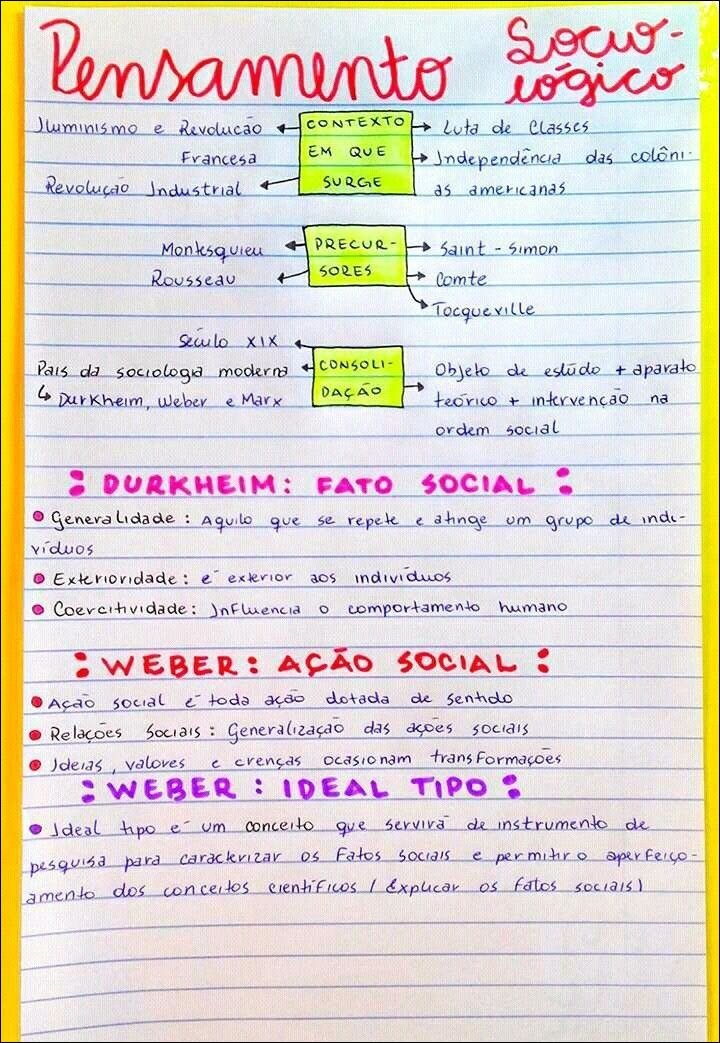 Pensamento Socio-
lógico
Iluminismo e Revolucão ← CONTEXTO → Luta de Classes
Francesa EM QUE → Independência das colôni-
Revolução Industrial ← SURGE as americanas
Montesquieu ← PRECUR- → Saint-Simon
Rousseau ← SORES → Comte
→ Tocqueville
Século XIX ←
Pais da sociologia moderna ← CONSOLI- Objeto de estúdo + aparato
↳ Durkheim, Weber e Marx DAÇÃO → teórico + intervenção na
ordem social
: DURKHEIM: FATO SOCIAL :
• Generalidade: Aquilo que se repete e atinge um grupo de indi-
víduos
• Exterioridade: é exterior aos indivíduos
• Coercitividade: Influencia o comportamento humano
: WEBER: AÇÃO SOCIAL :
• Ação social é toda ação dotada de sentido
• Relações Sociais: Generalização das ações sociais
• Ideias, valores e crenças ocasionam transformações
: WEBER: IDEAL TIPO :
• Ideal tipo é um conceito que servirá de instrumento de
pesquisa para caracterizar os fatos sociais e permitir o aperfeiço-
amento dos conceitos científicos (Explicar os fatos sociais)